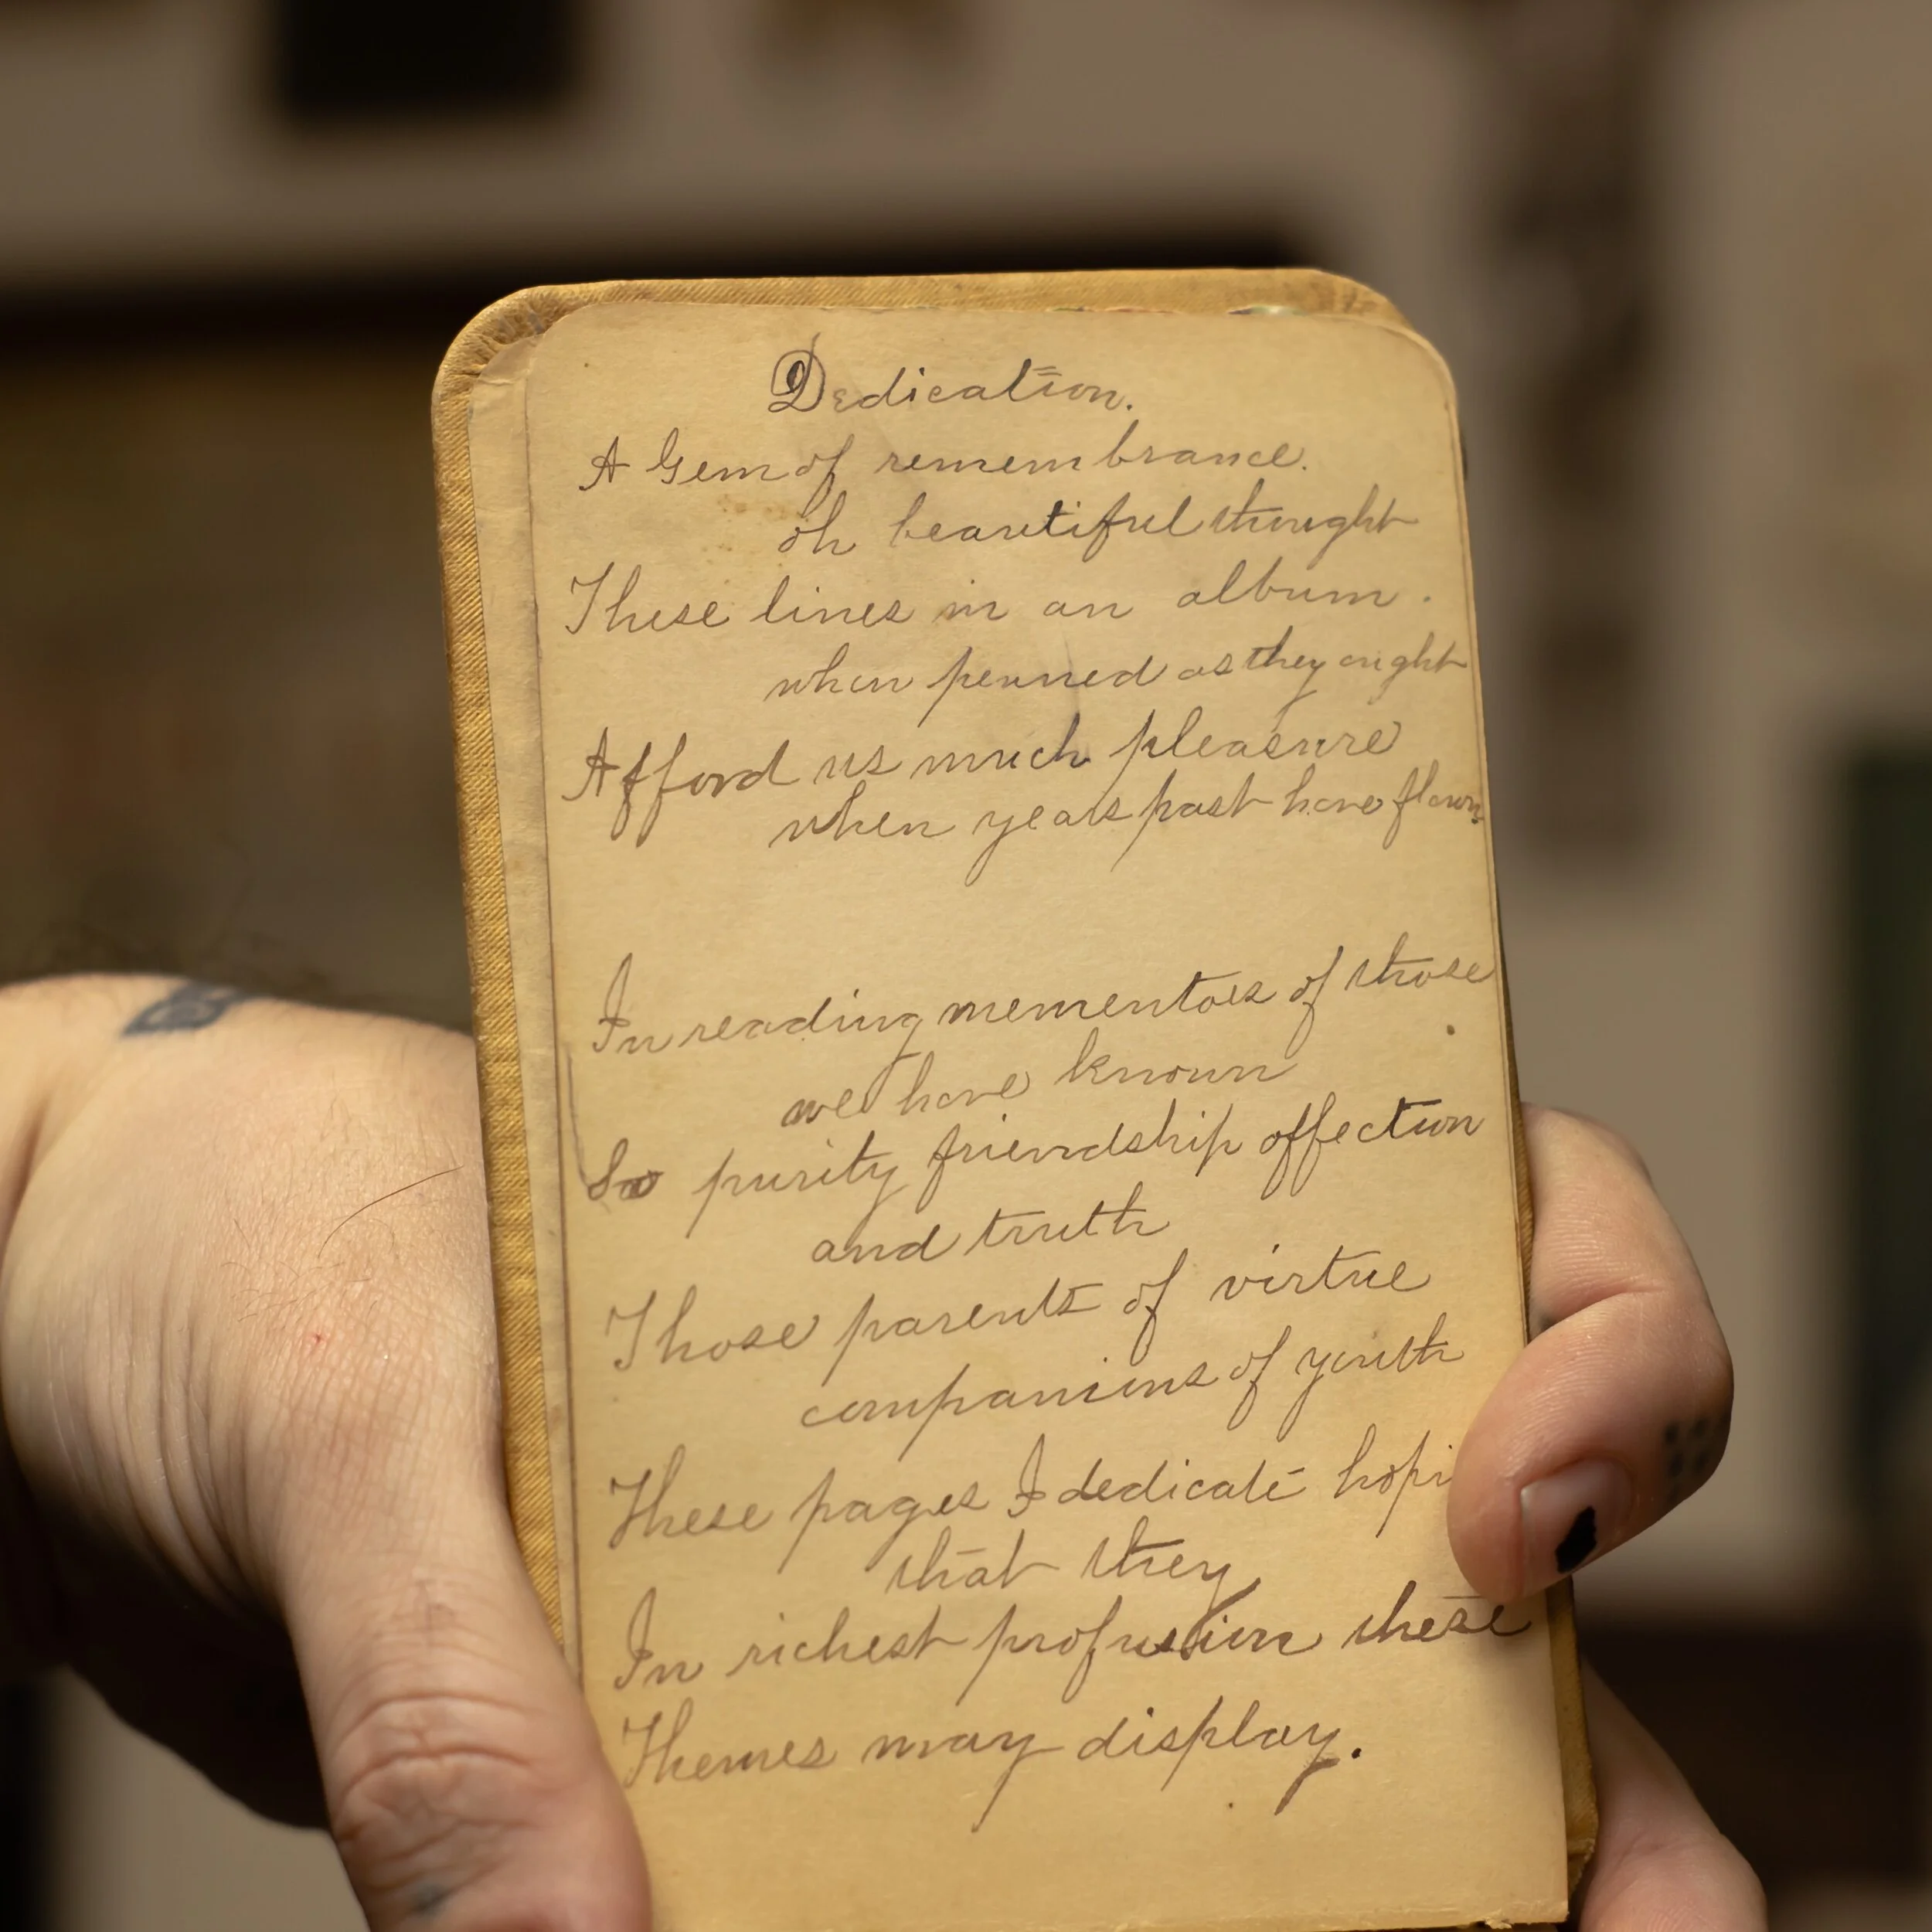 Dedication.
A Gem of remembrance.
oh beautiful thought
These lines in an album.
when penned as they ought
Afford us much pleasure
when years past have flown.
In reading mementoes of those
we have known
So purity friendship affection
and truth
Those parents of virtue
companions of youth
These pages I dedicate hopi
that they
In richest profusion these
Themes may display.